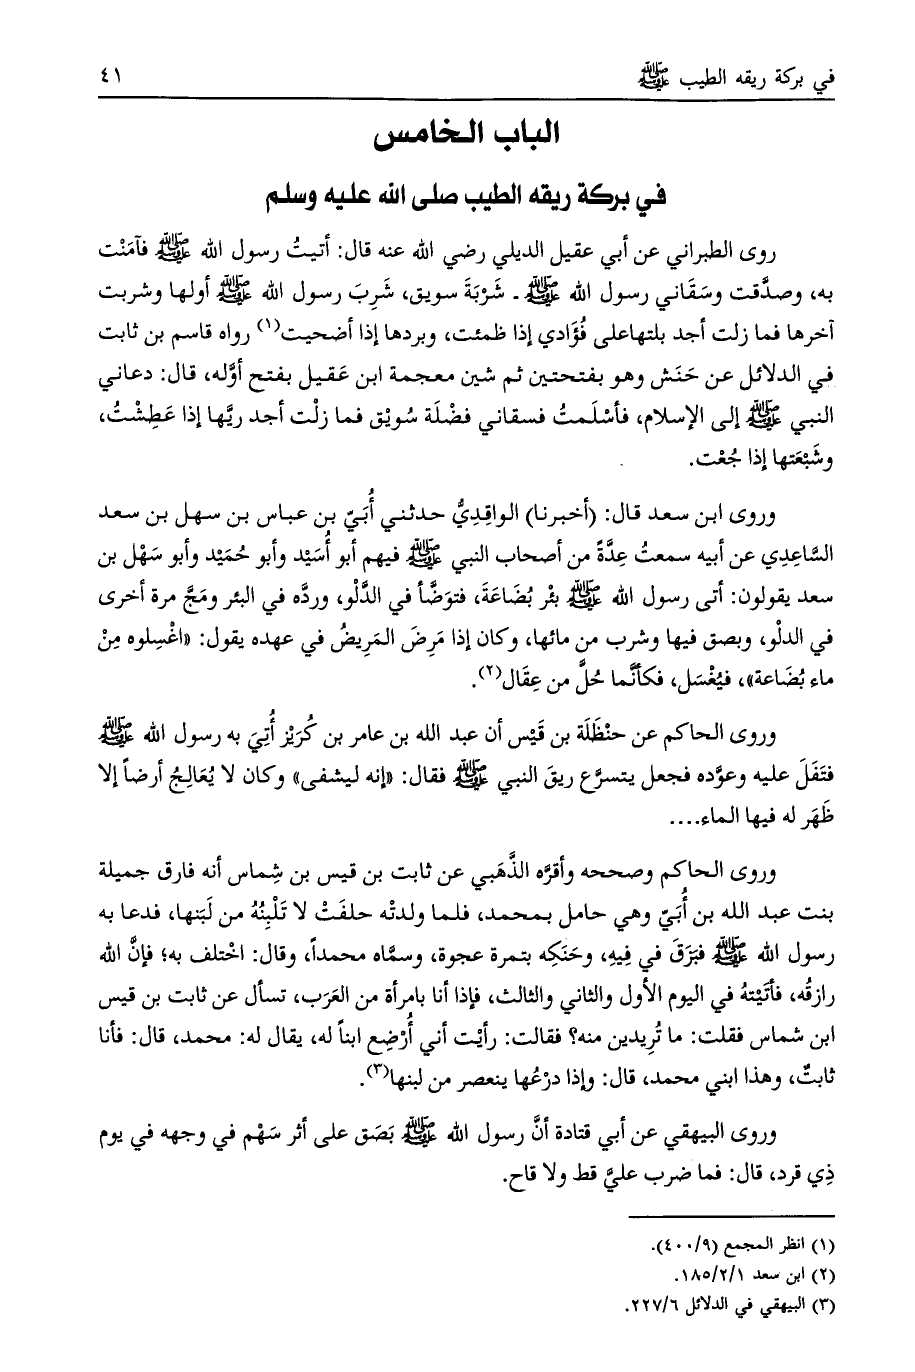 في بركة ريقه الطيب ﷺ ٤١
الباب الخامس
في بركة ريقه الطيب صلى الله عليه وسلم
روى الطبراني عن أبي عقيل الديلي رضي الله عنه قال: أتيتُ رسول الله ﷺ فآمَنْت
به، وصدَّقت وسَقَاني رسول الله ﷺ ـ شَرْبَةَ سويق، شَرِبَ رسول الله ﷺ أولها وشربت
آخرها فما زلت أجد بلتهاعلى فُؤَادي إذا ظمئت، وبردها إذا أضحيت(١) رواه قاسم بن ثابت
في الدلائل عن حَنَش وهو بفتحتين ثم شين معجمة ابن عَقيل بفتح أوَّله، قال: دعاني
النبي ﷺ إلى الإسلام، فأسْلَمتُ فسقاني فضْلَة سُويق فما زلْت أجد ريَّها إذا عَطِشْتُ،
وشَبْعَتها إذا جُعْت.
وروى ابن سعد قال: (أخبرنا) الواقِديُّ حدثني أُبَيّ بن عباس بن سهل بن سعد
السَّاعِدِي عن أبيه سمعتُ عِدَّةً من أصحاب النبي ﷺ فيهم أبو أُسَيْد وأبو حُمَيْد وأبو سَهْل بن
سعد يقولون: أتى رسول الله ﷺ بئْر بُضَاعَةَ، فتوَضَّأ في الدَّلْو، وردَّه في البئر ومَجَّ مرة أخرى
في الدلْو، وبصق فيها وشرب من مائها، وكان إذا مَرِضَ المَرِيضُ في عهده يقول: «اغْسِلوه مِنْ
ماء بُضَاعة»، فيُغْسَل، فكأنَّما حُلَّ من عِقَال(٢).
وروى الحاكم عن حنْظَلَة بن قَيْس أن عبد الله بن عامر بن كُرَيْز أُتِيَ به رسول الله ﷺ
فتَفَلَ عليه وعوَّده فجعل يتسرَّع ريقَ النبي ﷺ فقال: «إنه ليشفى» وكان لا يُعَالِجُ أرضاً إلا
ظَهَر له فيها الماء....
وروى الحاكم وصححه وأقرَّه الذَّهَبي عن ثابت بن قيس بن شِماس أنه فارق جميلة
بنت عبد الله بن أُبَيّ وهي حامل بمحمد، فلما ولدتْه حلفَتْ لا تَلْبِنُهُ من لَبَنها، فدعا به
رسول الله ﷺ فبَزَقَ في فِيهِ، وحَنَكِه بتمرة عجوة، وسمَّاه محمداً، وقال: اخْتلف به؛ فإنَّ الله
رازقُه، فأتَيْتهُ في اليوم الأول والثاني والثالث، فإذا أنا بامرأة من العَرَب، تسأل عن ثابت بن قيس
ابن شماس فقلت: ما تُرِيدين منه؟ فقالت: رأيْت أني أُرْضِع ابناً له، يقال له: محمد، قال: فأنا
ثابتٌ، وهذا ابني محمد، قال: وإذا درْعُها ينعصر من لبنها(٣).
وروى البيهقي عن أبي قتادة أنَّ رسول الله ﷺ بَصَق على أثر سَهْم في وجهه في يوم
ذِي قرد، قال: فما ضرب عليَّ قط ولا قاح.
(١) انظر المجمع (٤٠٠/٩).
(٢) ابن سعد ١٨٥/٢/١.
(٣) البيهقي في الدلائل ٢٢٧/٦.